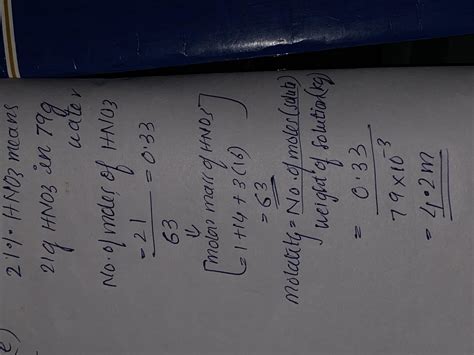 e)
21% HNO3 means
21g HNO3 in 79g
water
No. of moles of HNO3
= 21/63 = 0.33
↓
[molar mass of HNO3]
= 1+14+3(16)
= 63
molality = No. of moles (solute)/weight of solution (kg)
= 0.33/79×10⁻³
= 4.2m